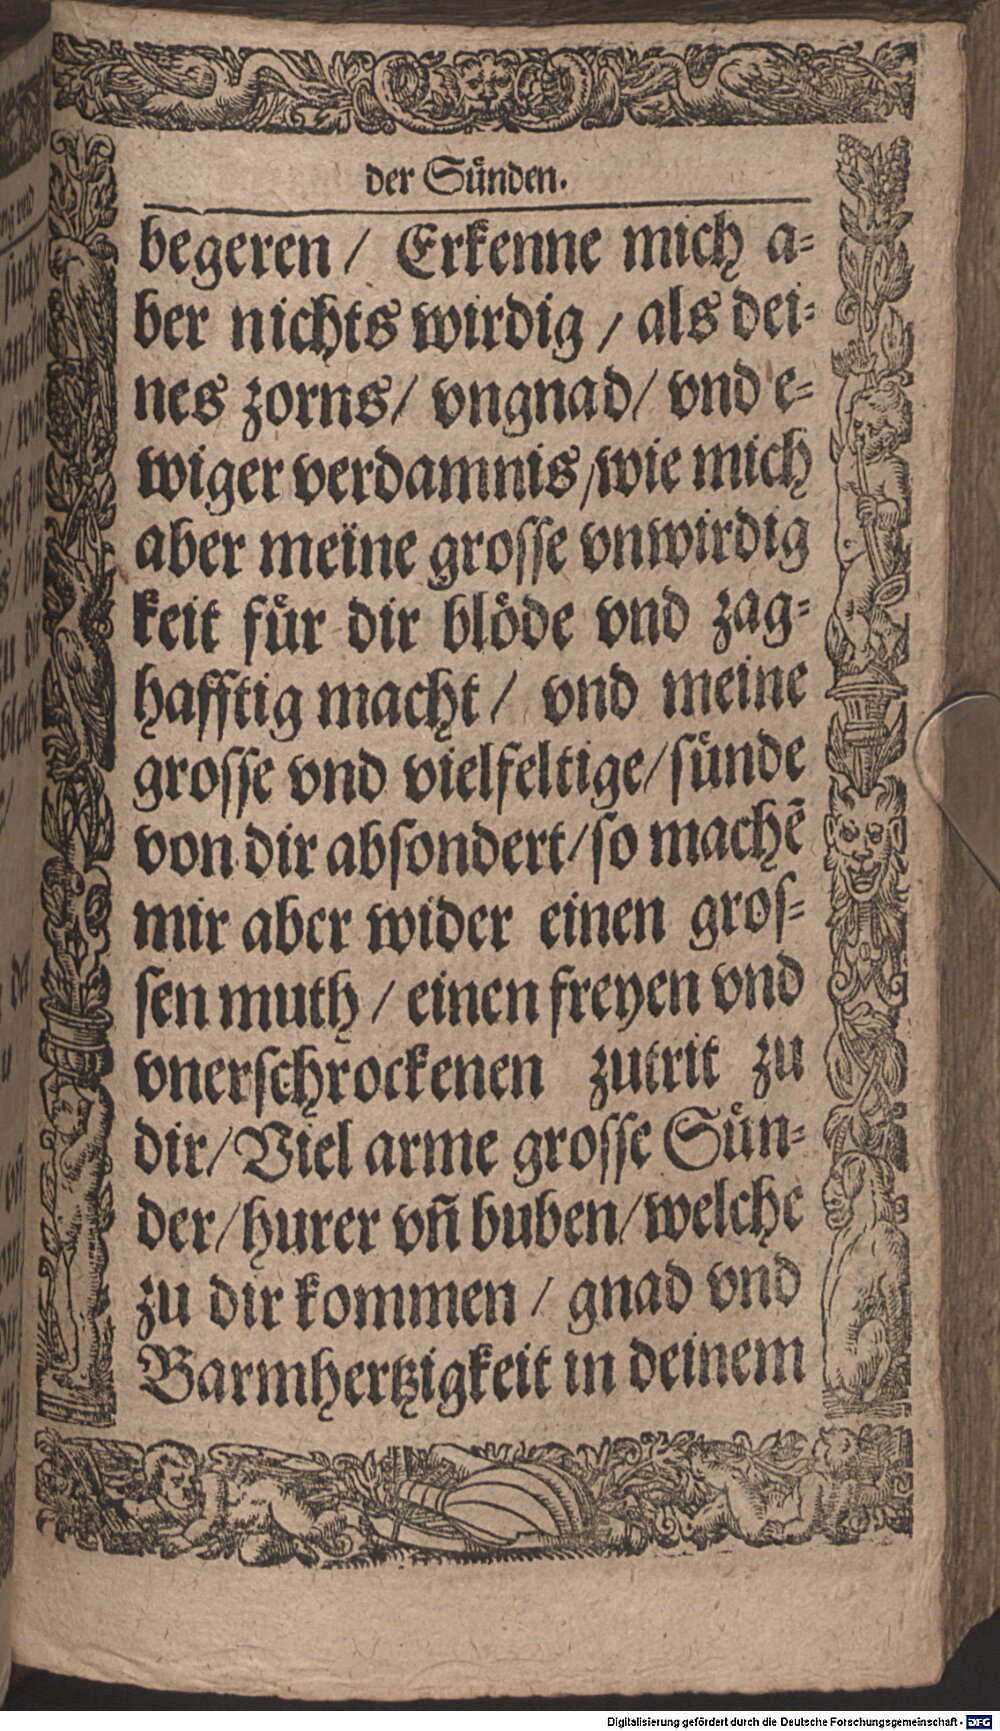 der Sünden.
begeren / Erkenne mich a-
ber nichts wirdig / als dei-
nes zorns / vngnad / vnd e-
wiger verdamnis / wie mich
aber meine grosse vnwirdig
keit für dir blöde vnd zag-
hafftig macht / vnd meine
grosse vnd vielfeltige / sünde
von dir absondert / so machẽ
mir aber wider einen gros-
sen muth / einen freyen vnd
vnerschrockenen zutrit zu
dir / Viel arme grosse Sün-
der / hurer vñ buben / welche
zu dir kommen / gnad vnd
Barmhertzigkeit in deinem
Digitalisierung gefördert durch die Deutsche Forschungsgemeinschaft - DFG